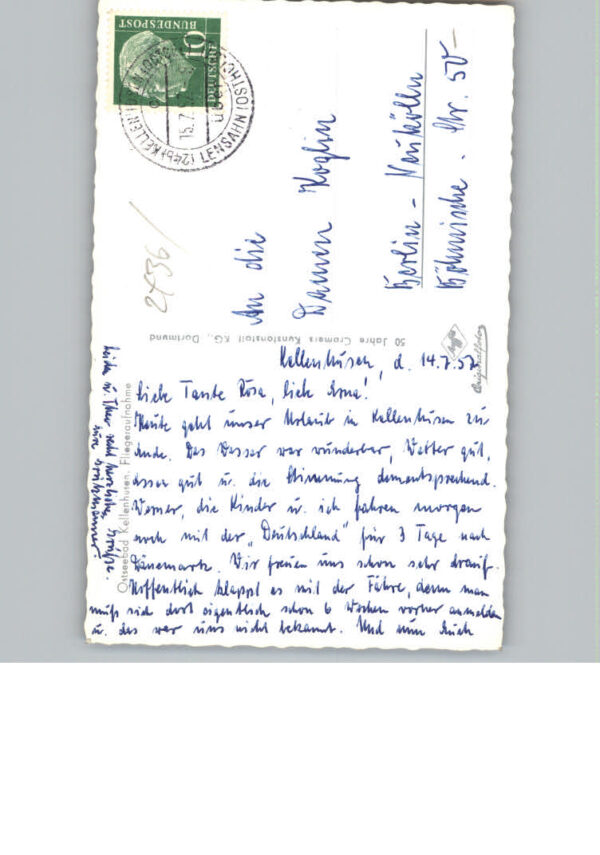 10
DEUTSCHE
BUNDESPOST
(24b) KELLENHUSEN
LENSAHN (OSTHOLST)
15.7.57
2736/
An die
Damen Koglin
Berlin - Neukölln
Böhmische - Str. 50
50 Jahre Cramers Kunstanstalt KG., Dortmund
Agfa
Originalfoto
Ostseebad Kellenhusen, Fliegeraufnahme
Kellenhusen, d. 14.7.57
Liebe Tante Rosa, liebe Erna!
Heute geht unser Urlaub in Kellenhusen zu
Ende. Das Wasser war wunderbar, Wetter gut,
Essen gut u. die Stimmung dementsprechend.
Werner, die Kinder u. ich fahren morgen
noch mit der „Deutschland" für 3 Tage nach
Dänemark. Wir freuen uns schon sehr drauf.
Hoffentlich klappt es mit der Fähre, denn man
muß sich dort eigentlich schon 6 Wochen vorher anmelden
u. das war uns nicht bekannt. Und nun Euch
beiden u. sehr herzliche Grüße.